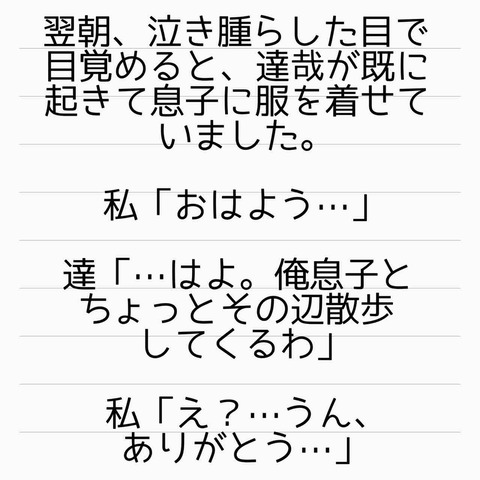 翌朝、泣き腫らした目で
目覚めると、達哉が既に
起きて息子に服を着せて
いました。
私「おはよう…」
達「…はよ。俺息子と
ちょっとその辺散歩
してくるわ」
私「え？…うん、
ありがとう…」